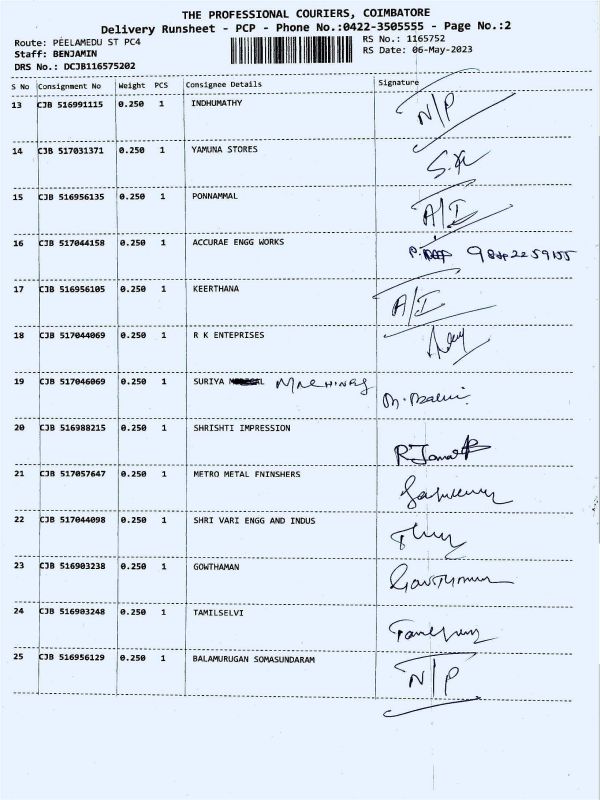 THE PROFESSIONAL COURIERS, COIMBATORE
Delivery Runsheet - PCP - Phone No.:0422-3505555 - Page No.:2
Route: PEELAMEDU ST PC4
RS No.: 1165752
Staff: BENJAMIN
RS Date: 06-May-2023
DRS No.: DCJB116575202
S No Consignment No Weight PCS Consignee Details Signature
13 CJB 516991115 0.250 1 INDHUMATHY N/P
14 CJB 517031371 0.250 1 YAMUNA STORES
15 CJB 516956135 0.250 1 PONNAMMAL A/I
16 CJB 517044158 0.250 1 ACCURAE ENGG WORKS
17 CJB 516956105 0.250 1 KEERTHANA A/I
18 CJB 517044069 0.250 1 R K ENTEPRISES
19 CJB 517046069 0.250 1 SURIYA MACHINES
20 CJB 516988215 0.250 1 SHRISHTI IMPRESSION
21 CJB 517057647 0.250 1 METRO METAL FNINSHERS
22 CJB 517044098 0.250 1 SHRI VARI ENGG AND INDUS
23 CJB 516903238 0.250 1 GOWTHAMAN
24 CJB 516903248 0.250 1 TAMILSELVI
25 CJB 516956129 0.250 1 BALAMURUGAN SOMASUNDARAM N/P